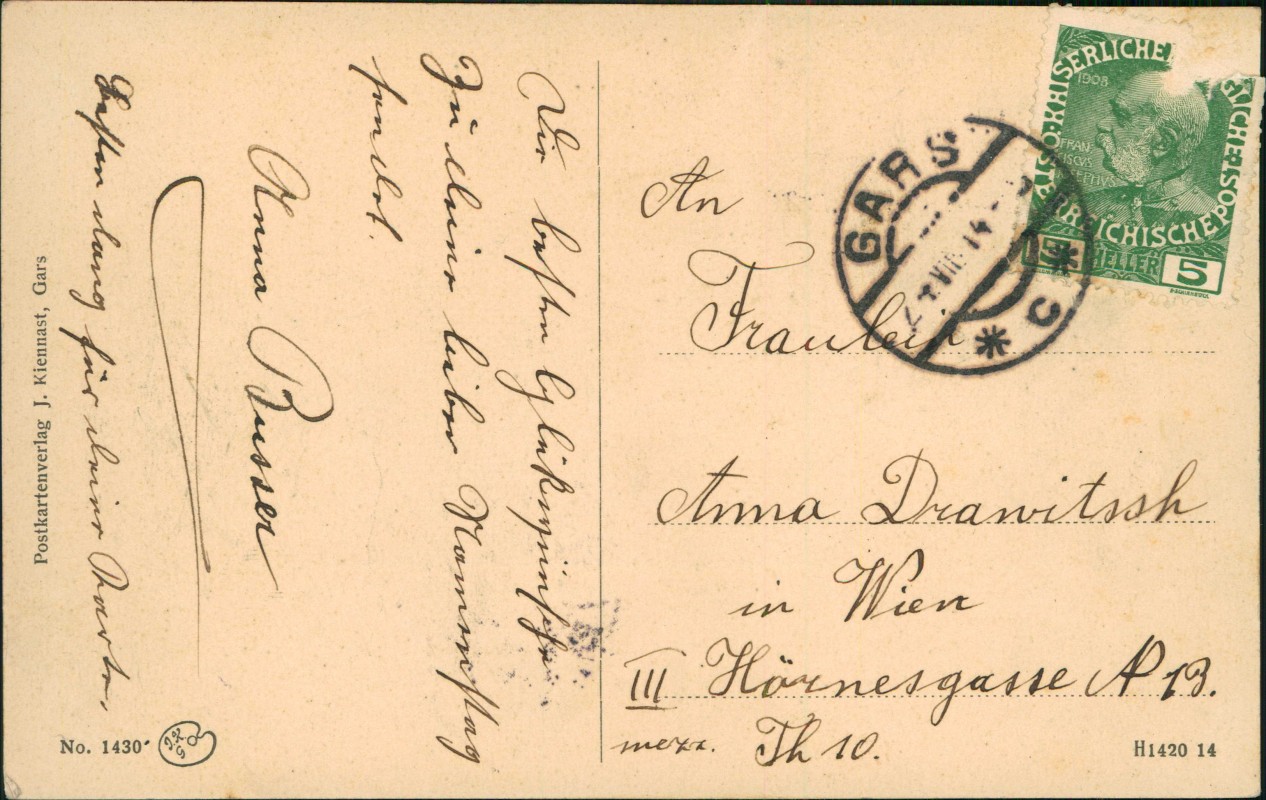 Die besten Glükwünsche
zu deinen lieben Namenstag
sendet.
Anna Busser
Besten Dang für deine Karte.
Postkartenverlag J. Kiennast, Gars
No. 1430
An
Fräulein
Anna Drawitssh
in Wien
III Hörnesgasse N 13.
mezz. Th 10.
H1420 14
GARS
VIII 14
C
KAISERLICHE
KÖNIGLICHE
ÖSTERREICHISCHE POST
1908
FRAN
CISCVS
IOSEPHVS
HELLER 5